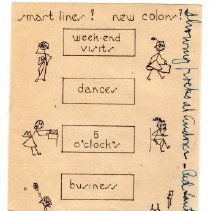 smart lines! new colors!
week-end
visits
dances
5
o'clocks
business
Showing frocks at